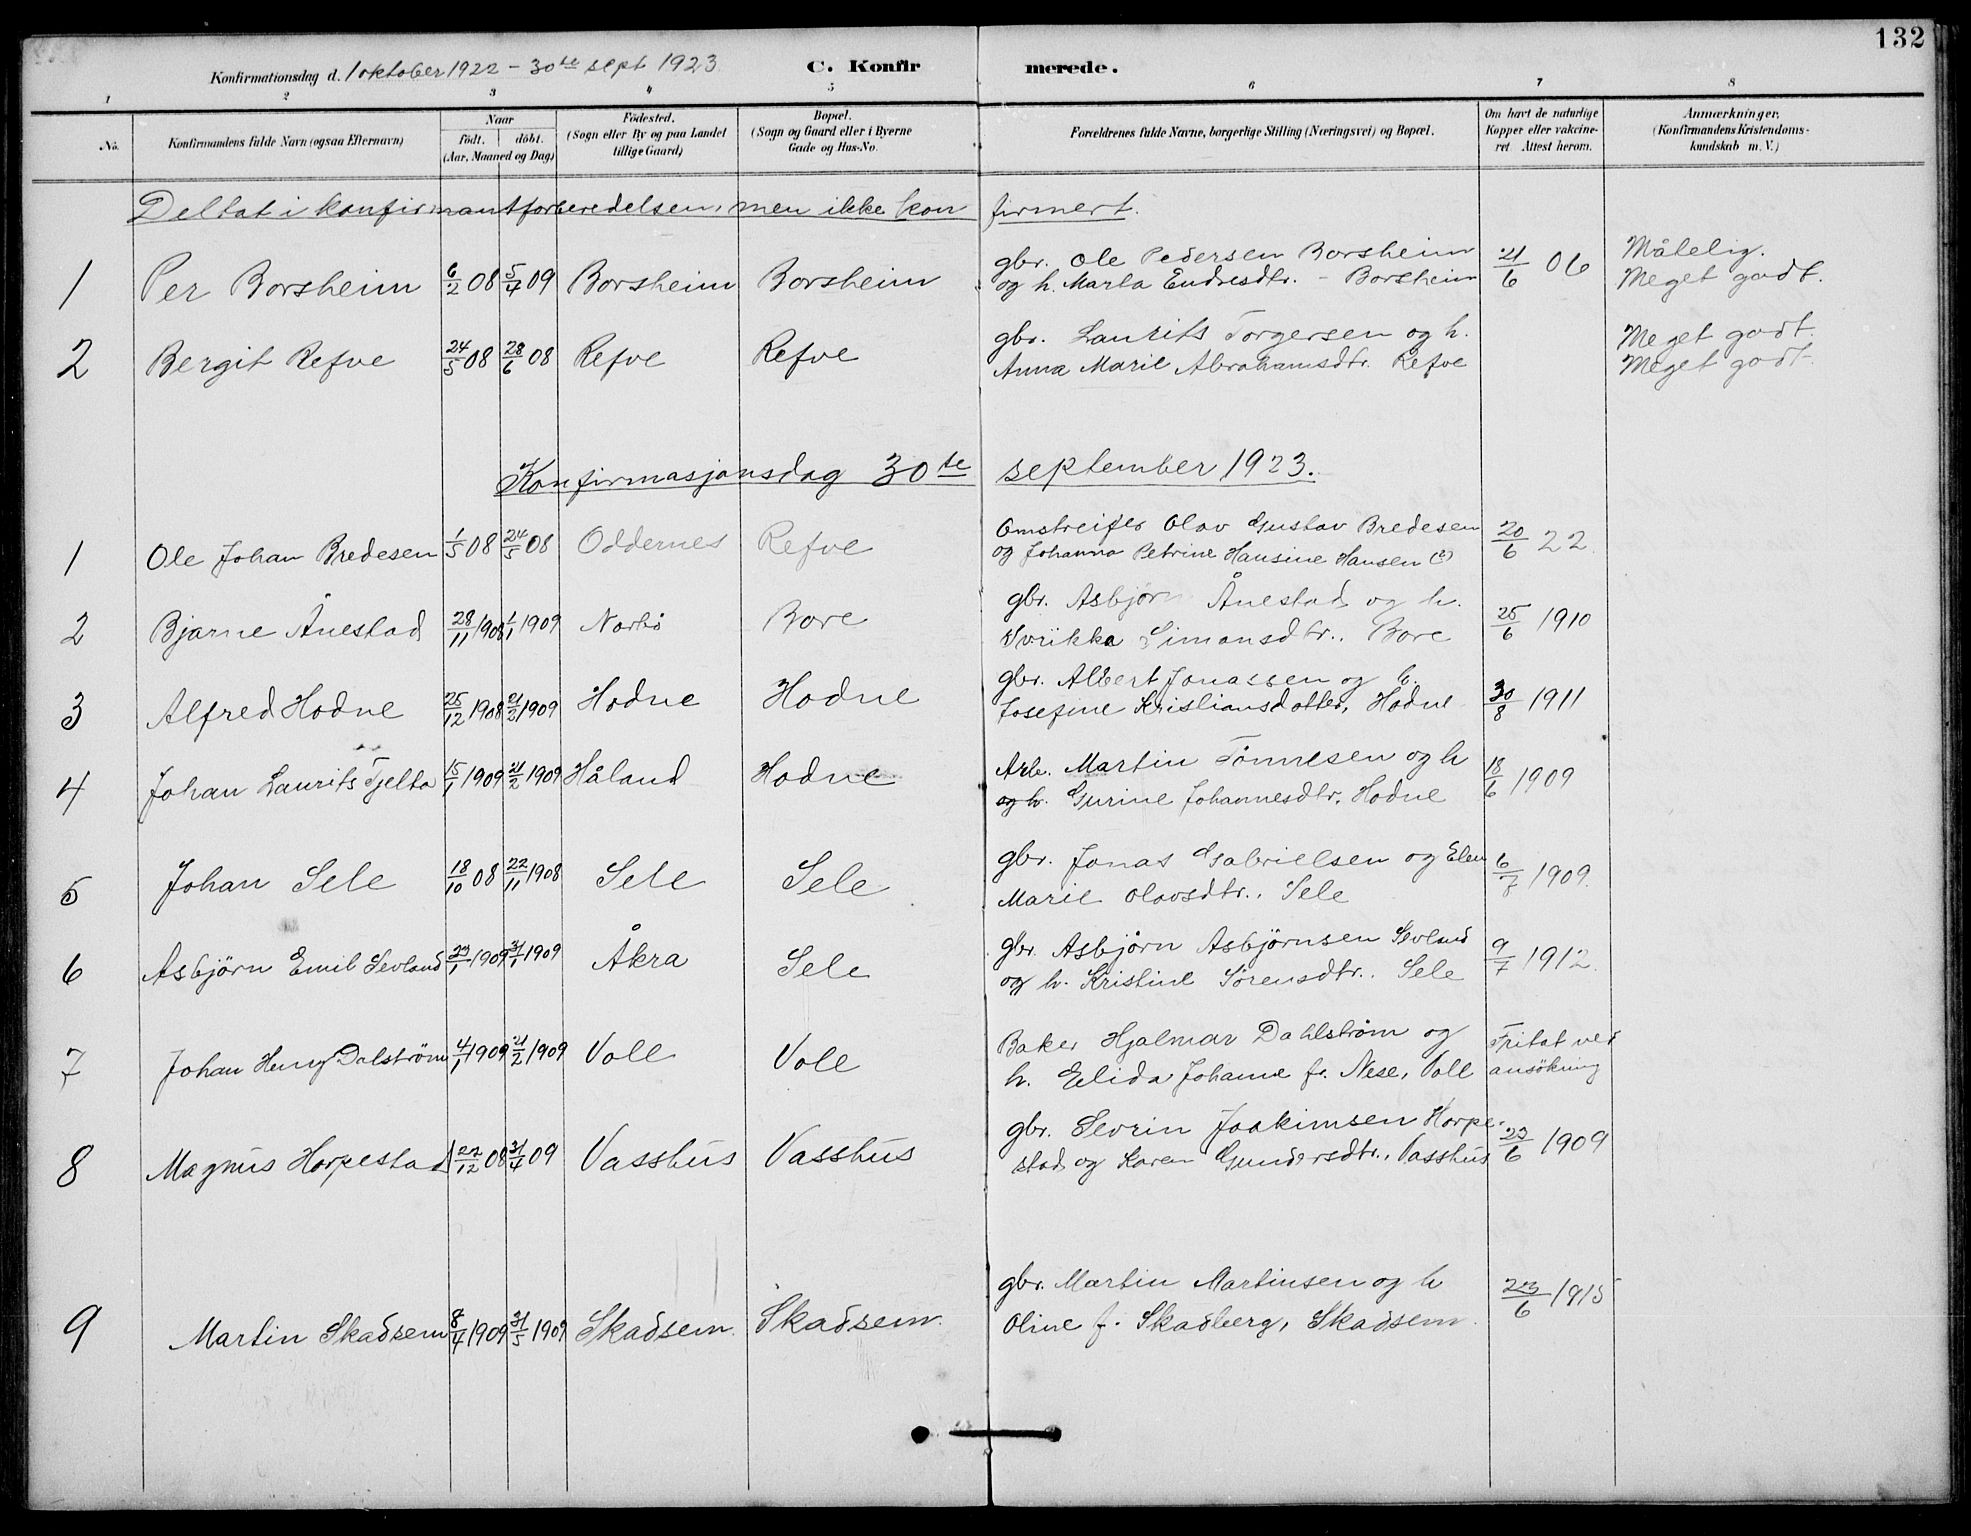 132
Konfirmationsdag d. 1 oktober 1922 – 30te sept 1923. C. Konfirmerede.
1 2 3 4 5 6 7 8
No. Konfirmandens fulde Navn (ogsaa Efternavn) Naar født. døbt. (Aar, Maaned og Dag) Fødested. (Sogn eller By og paa Landet tillige Gaard) Bopæl. (Sogn og Gaard eller i Byerne Gade og Hus-No. Forældrenes fulde Navne, borgerlige Stilling (Næringsvei) og Bopæl. Om havt de naturlige Kopper eller vakcineret Attest herom. Anmærkninger, (Konfirmandens Kristendomskundskab m. V.)
Deltat i konfirmantforberedelsen, men ikke konfirmert.
1 Per Borsheim 6/2 08 5/4 09 Borsheim Borsheim gbr. Ole Pedersen Borsheim 21/6 06 Målelig.
og h. Marta Endresdtr. – Borsheim Meget godt.
2 Bergit Refve 24/5 08 28/6 08 Refve Refve gbr. Laurits Torgersen og h. Meget godt.
Anna Marie Abrahamsdtr. Refve Meget godt.
Konfirmasjonsdag 30te september 1923.
1 Ole Johan Bredesen 1/5 08 24/5 08 Oddernes Refve Omstreifer Olav Gustav Bredesen 20/6 22.
og Johanna Petrine Hansine Hansen (?)
2 Bjarne Ånestad 28/11 1908 1/1 1909 Nærbö Bore gbr. Asbjørn Ånestad og h. 25/6 1910
Simonsdtr., Bore
3 Alfred Hodne 25/12 1908 21/2 1909 Hodne Hodne gbr. Albert Jonassen og h. 30/8 1911
Josefine Kristiansdotter, Hodne
4 Johan Laurits Tjelta 15/1 1909 21/2 1909 Håland Hodne Arb. Martin Tönnesen og h 18/6 1909
og h. Gurine Johannesdtr, Hodne
5 Johan Sele 18/10 08 22/11 1908 Sele Sele gbr. Jonas Gabrielsen og Elen 6/7 1909.
Marie Olavsdtr., Sele
6 Asbjörn Emil Sevland 23/1 1909 31/1 1909 Åkra Sele gbr. Asbjørn Asbjørnsen Sevland 9/7 1912.
og h. Kristine Sørensdtr.. Sele
7 Johan Henry Dalström 4/1 1909 21/2 1909 Voll Voll Baker Hjalmar Dahlström og Fritat ved
h. Elida Johanne f. Nese, Voll ansökning
8 Magnus Horpestad 27/12 08 31/4 09 Vasshus Vasshus gbr. Sevrin Joakimsen Horpe- 23/6 1909
stad og Karen Gundersdtr., Vasshus
9 Martin Skadsem 8/4 1909 31/5 1909 Skadsem. Skadsem. gbr. Martin Martinsen og h 23/6 1915
Oline f. Skadberg, Skadsem.